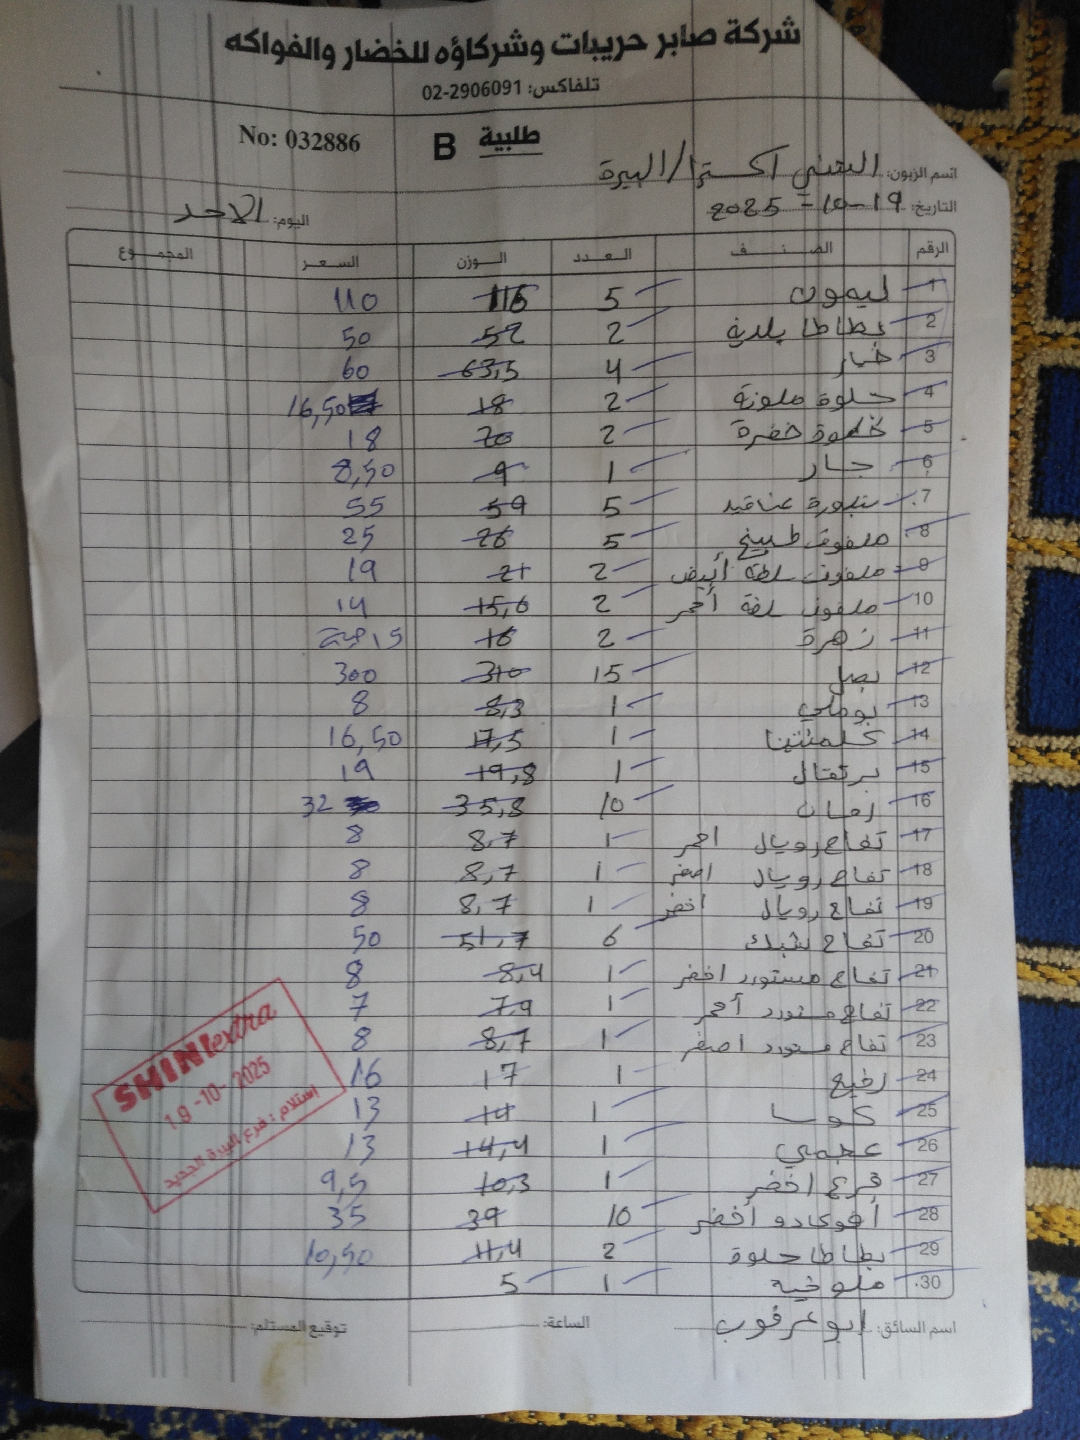 شركة صابر حريبات وشركاؤه للخضار والفواكه
تلفاكس: 02-2906091
طلبية B No: 032886
اسم الزبون: الشني اكسترا/البيرة
التاريخ: 19-10-2025 اليوم: الاحد
الرقم الصنف العدد الوزن السعر المجموع
1 ليمون 5 116 110
2 بطاطا بلدية 2 52 50
3 خيار 4 63,5 60
4 حلوة ملونة 2 18 16,50
5 حلوة خضرة 2 20 18
6 جزر 1 9 8,50
7 بندورة عناقيد 5 59 55
8 ملفوف طبيخ 5 26 25
9 ملفوف سلطة أبيض 2 21 19
10 ملفوف سلطة أحمر 2 15,6 14
11 زهرة 2 16 15
12 بصل 15 310 300
13 بوملي 1 8,3 8
14 كلمنتينا 1 17,5 16,50
15 برتقال 1 19,8 19
16 رمان 10 35,8 32
17 تفاح رويال احمر 1 8,7 8
18 تفاح رويال اصفر 1 8,7 8
19 تفاح رويال اخضر 1 8,7 8
20 تفاح تشبك 6 51,7 50
21 تفاح مستورد اخضر 1 8,4 8
22 تفاح مستورد أحمر 1 7,9 7
23 تفاح مستورد اصفر 1 8,7 8
24 رفيع 1 17 16
25 كوسا 1 14 13
26 عجمي 1 14,4 13
27 قرع اخضر 1 10,3 9,5
28 أفوكادو أخضر 10 39 35
29 بطاطا حلوة 2 11,4 10,50
30 ملوخية 1 5
SHINI extra
19-10-2025
استلام: فرع البيرة الجديد
اسم السائق: ابو عرقوب الساعة: توقيع المستلم: